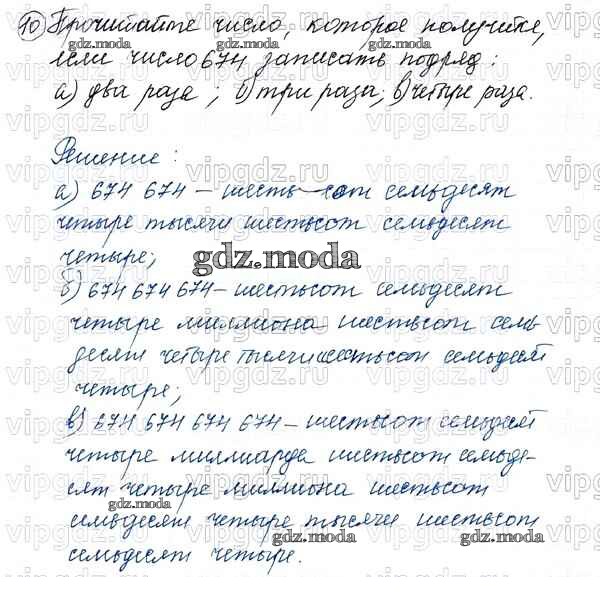 10) Прочитайте число, которое получите,
если число 674 записать подряд:
а) два раза; б) три раза; в) четыре раза.
Решение:
а) 674 674 – шестьсот семьдесят
четыре тысячи шестьсот семьдесят
четыре;
gdz.moda
б) 674 674 674 – шестьсот семьдесят
четыре миллиона шестьсот семь-
десят четыре тысячи шестьсот семьдесят
четыре;
в) 674 674 674 674 – шестьсот семьдесят
четыре миллиарда шестьсот семьде-
сят четыре миллиона шестьсот
семьдесят четыре тысячи шестьсот
семьдесят четыре.
gdz.moda
gdz.moda
gdz.moda
gdz.moda
gdz.moda
vipgdz.ru